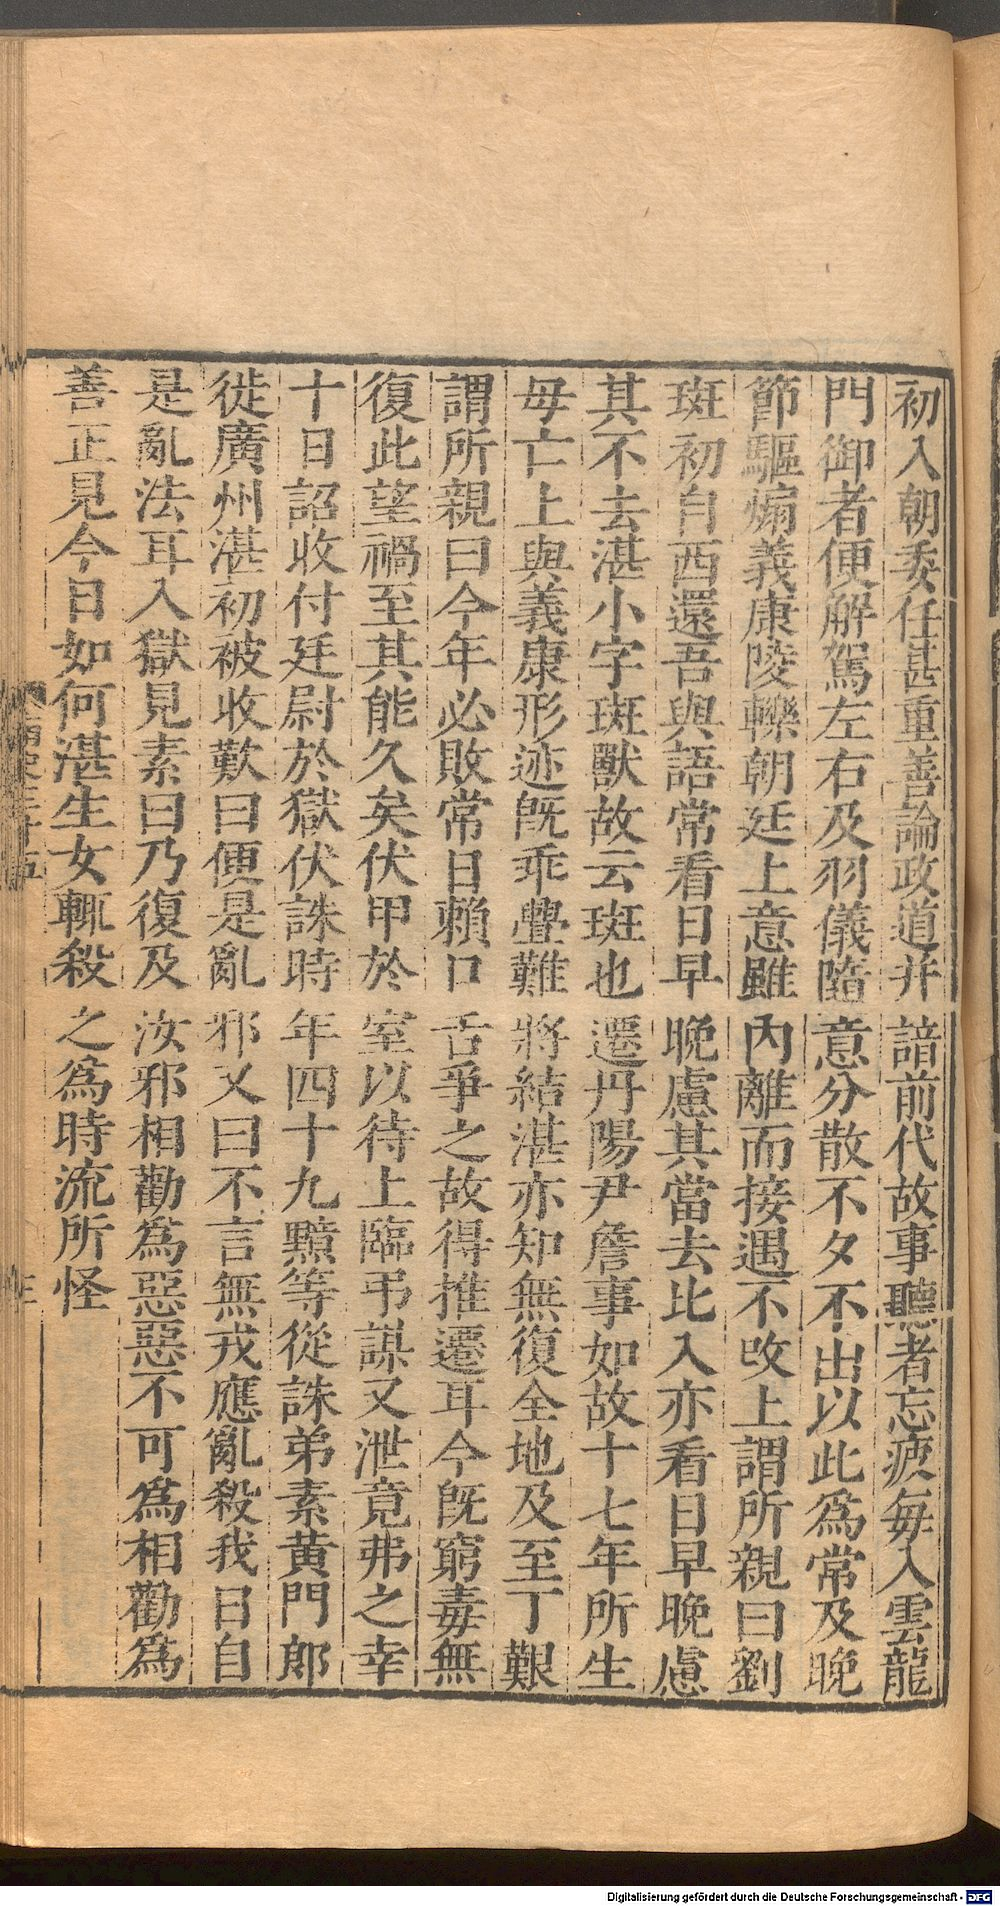 初入朝委任甚重善論政道并諳前代故事聽者忘疲每入雲龍
門御者便解駕左右及羽儀隨意分散不夕不出以此爲常及晚
節驅煽義康陵轢朝廷上意雖內離而接遇不改上謂所親曰劉
斑初自西還吾與語常看日早晚慮其當去比入亦看日早晚慮
其不去湛小字斑獸故云斑也遷丹陽尹詹事如故十七年所生
母亡上與義康形迹旣乖舋難將結湛亦知無復全地及至丁艱
謂所親曰今年必敗常日賴口舌爭之故得推遷耳今旣窮毒無
復此望禍至其能久矣伏甲於室以待上臨弔謀又泄竟弗之幸
十日詔收付廷尉於獄伏誅時年四十九黯等從誅弟素黄門郎
徙廣州湛初被收歎曰便是亂邪又曰不言無戎應亂殺我日自
是亂法耳入獄見素曰乃復及汝邪相勸爲惡惡不可爲相勸爲
善正見今日如何湛生女輒殺之爲時流所怪
Digitalisierung gefördert durch die Deutsche Forschungsgemeinschaft - DFG